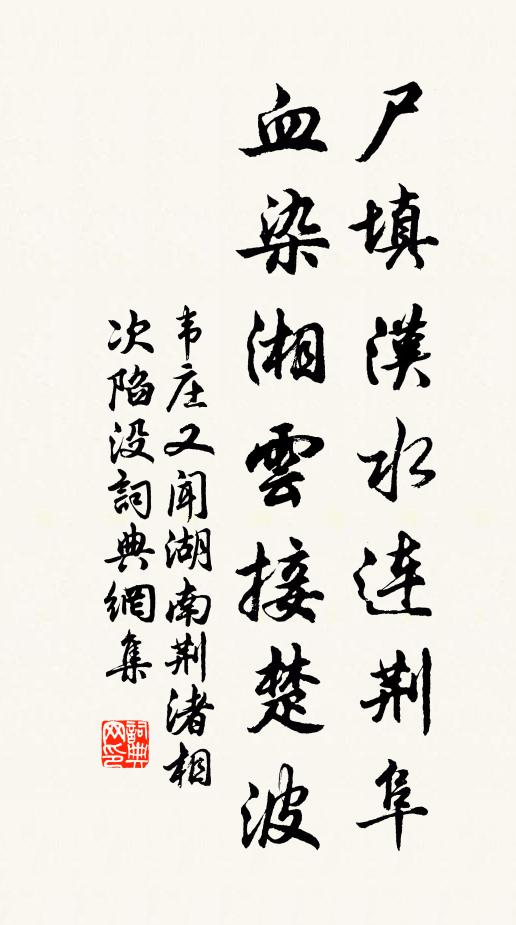 尸填漢水连荆阜
血染湘雲接楚波
韦庄又闻湖南荆渚相
次陷没詞典網集
詞典
网印